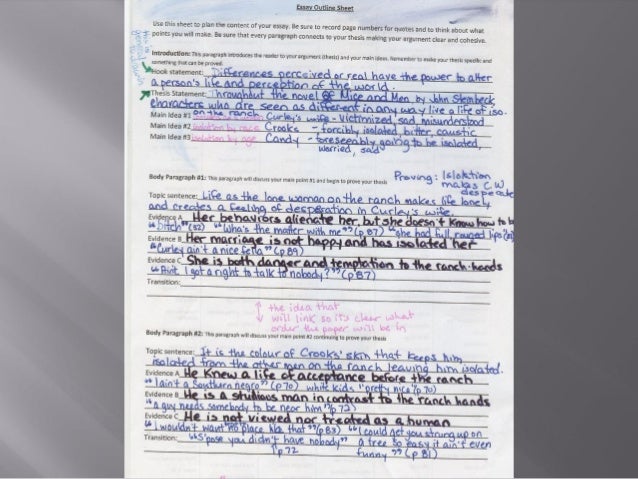 Essay Outline Sheet
Use this sheet to plan the content of your essay. Be sure to record page numbers for quotes and to think about what
points you will make. Be sure that every paragraph connects to your thesis making your argument clear and cohesive.
Introduction: This paragraph introduces the reader to your argument (thesis) and your main ideas. Remember to make your thesis specific and
something that can be proved.
Hook statement: Differences perceived or real have the power to alter
a person's life and perception of the world.
Thesis Statement: Throughout the novel Of Mice and Men by John Steinbeck,
characters who are seen as different in any way live a life of iso.
on the ranch
Main Idea #1 Curley's wife - Victimized, sad, misunderstood
Main Idea #2 isolation by race Crooks - forcibly isolated, bitter, caustic
Main Idea #3 isolation by age Candy - foreseenably going to be isolated,
worried, sad
Proving: Islolation
makes C.W
desperate
Body Paragraph #1: This paragraph will discuss your main point #1 and begin to prove your thesis
Topic sentence: Life as the lone woman on the ranch makes life lonely
and creates a feeling of desperation in Curley's wife.
Evidence A Her behaviors alienate her, but she doesn't know how to be
"Bitch" (32) "Wha's the matter with me" (p 87) "she had full rouged lips
Evidence B Her marriage is not happy and has isolated her
"Curley ain't a nice fella" (p 89)
Evidence C She is both danger and temptation to the ranch hands
"Aint I got a right to talk to nobody?" (p 87)
Transition:
↑ the idea that
will link so its clear what
order the paper will be in
Body Paragraph #2: This paragraph will discuss your main point #2 continuing to prove your thesis
Topic sentence: It is the colour of Crooks' skin that keeps him
isolated from the other men on the ranch leaving him isolated.
Evidence A He Knew a life of acceptance before the ranch
"I ain't a Southern negro" (p 70) white kids "pretty nice" (p 70)
Evidence B He is a studious man in contrast to the ranch hands
"a guy needs somebody to be near him" (p 72)
Evidence C He is not viewed nor treated as a human
"I wouldn't want no place like that" (p 83) "I could get you strung up on
Transition: "S'pose you didn't have nobody" a tree so easy it ain't even
p 72 funny" (p 81)